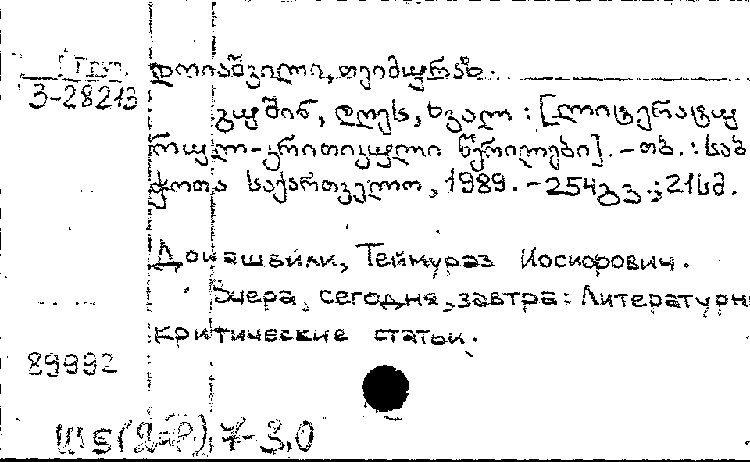 Груз. დოიაშვილი, თეიმურაზ.
3-28213
გუშინ, დღეს, ხვალ : [ლიტერატუ
რულ-კრიტიკული წერილები]. - თბ. : საბ
ჭოთა საქართველო, 1989. - 254 გვ. ; 21სმ.
Доиашвили, Теймураз Иосифович.
Вчера, сегодня, завтра: Литературн
критические статьи.
89992
7-3,0